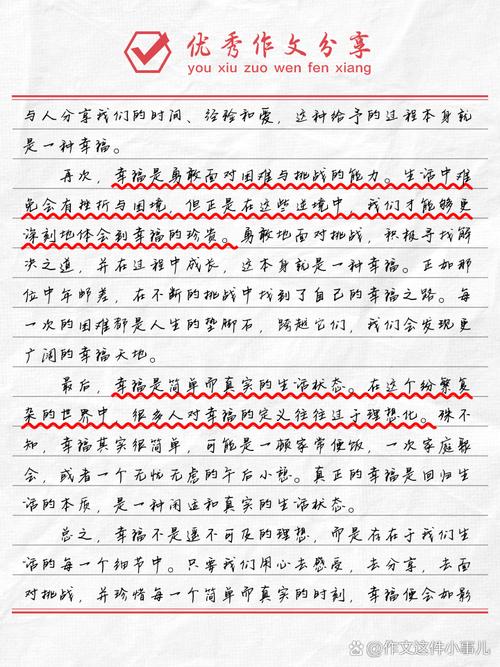 优秀作文分享
you xiu zuo wen fen xiang
与人分享我们的时间、经验和爱，这种给予的过程本身就
是一种幸福。
再次，幸福是勇敢面对困难与挑战的能力。生活中难
免会有挫折与困境，但正是在这些逆境中，我们才能够更
深刻地体会到幸福的珍贵。勇敢地面对挑战，积极寻找解
决之道，并在过程中成长，这本身就是一种幸福。正如那
位中年邮差，在不断的挑战中找到了自己的幸福之路。每
一次的困难都是人生的垫脚石，跨越它们，我们会发现更
广阔的幸福天地。
最后，幸福是简单而真实的生活状态。在这个纷繁复
杂的世界中，很多人对幸福的定义往往过于理想化。殊不
知，幸福其实很简单，可能是一顿家常便饭，一次家庭聚
会，或者一个无忧无虑的午后小憩。真正的幸福是回归生
活的本质，是一种闲适和真实的生活状态。
总之，幸福不是遥不可及的理想，而是存在于我们生
活的每一个细节中。只要我们用心去感受，去分享，去面
对挑战，并珍惜每一个简单而真实的时刻，幸福便会如影
@作文这件小事儿